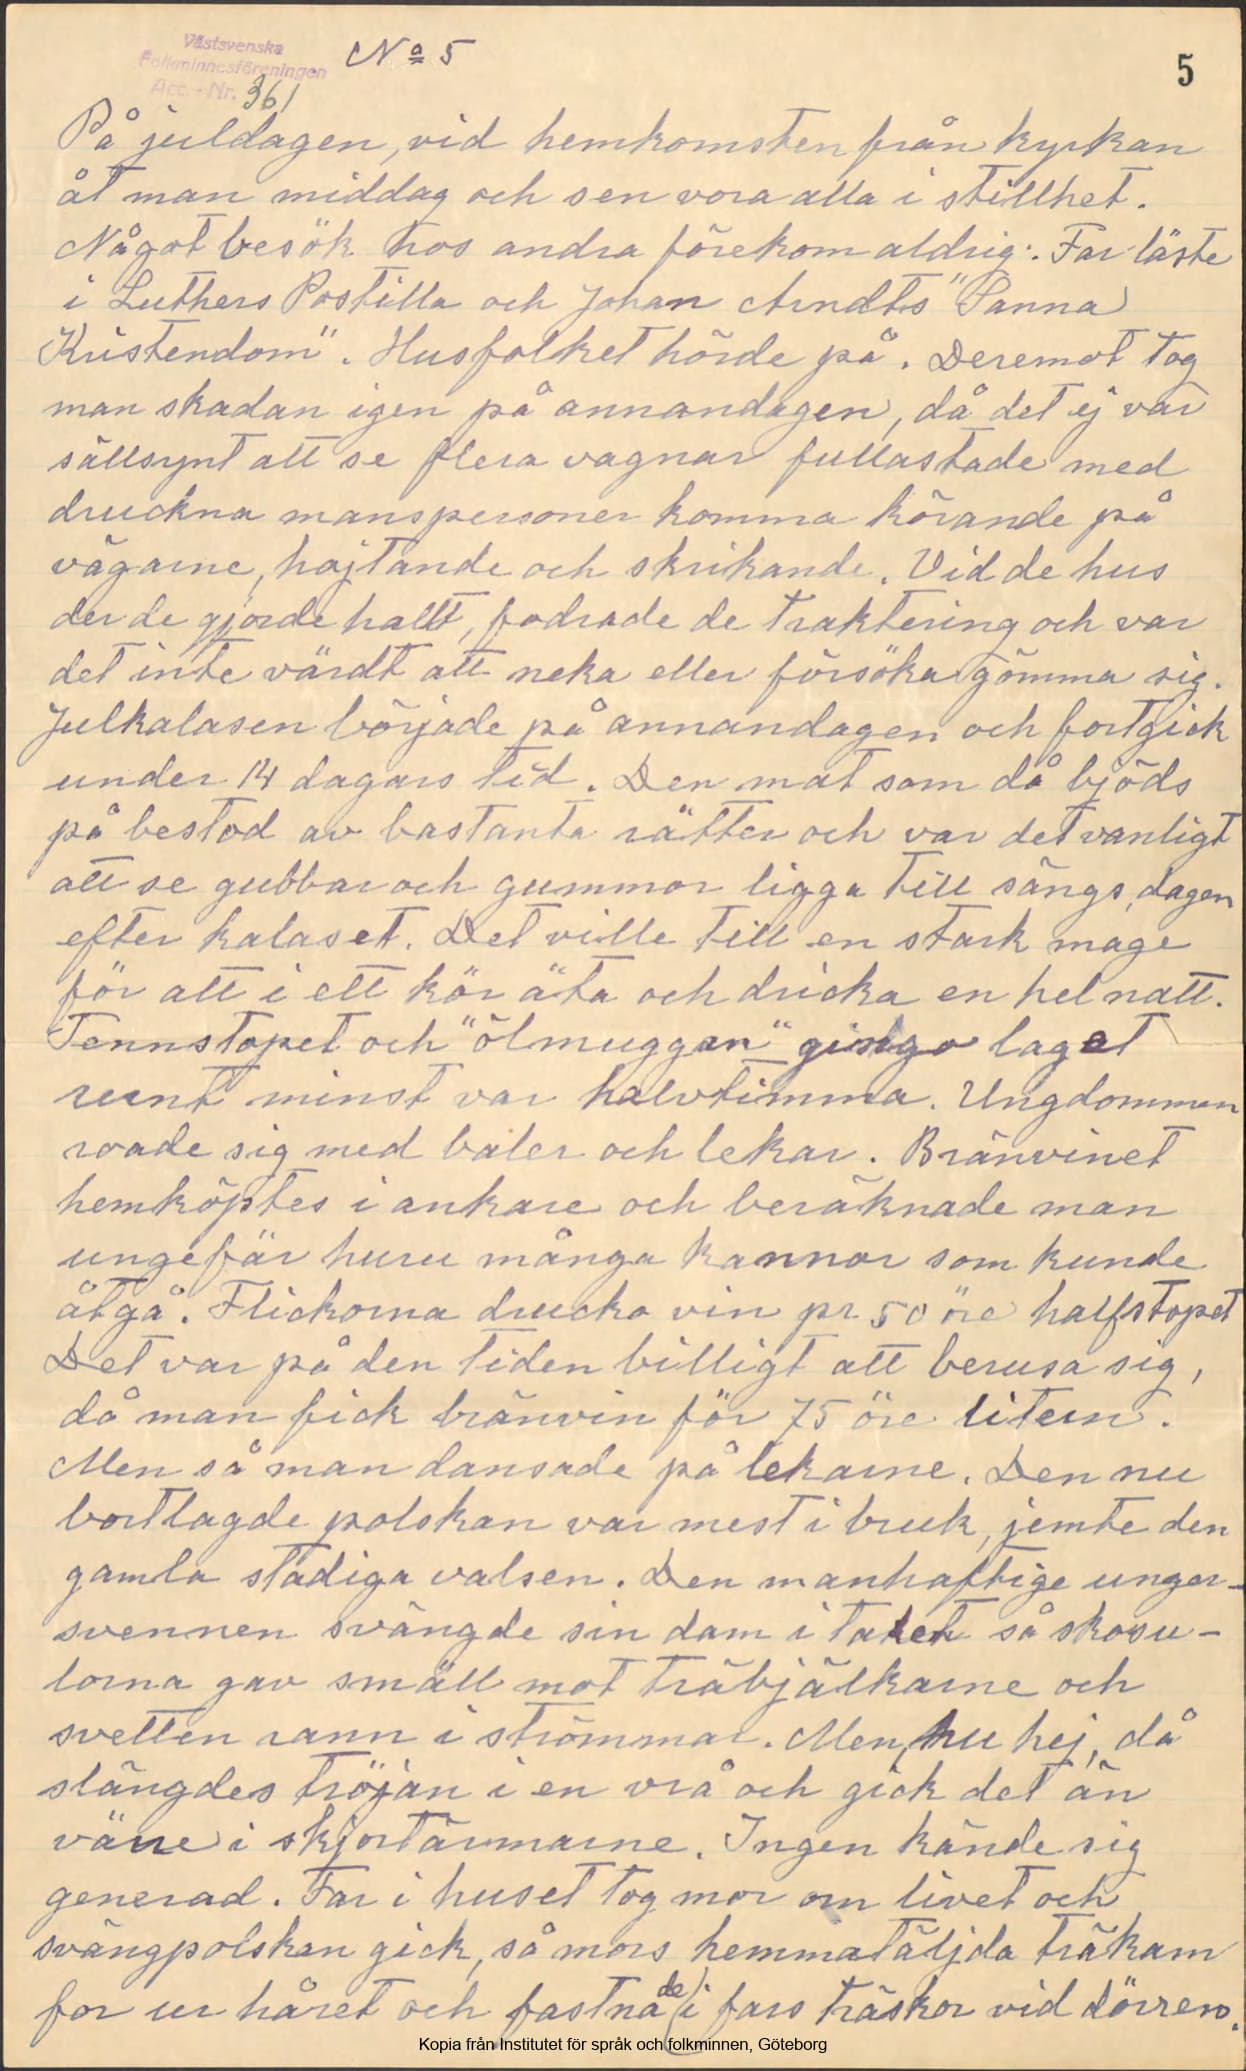 Västsvenska
Folkminnesföreningen
Acc.-Nr. 361
No 5
5
På juldagen, vid hemkomsten från kyrkan
åt man middag och sen vora alla i stillhet.
Något besök hos andra förekom aldrig. Far läste
i Luthers Postilla och Johan Arndts "Sanna
Kristendom". Husfolket hörde på. Deremot tog
man skadan igen på annandagen, då det ej var
sällsynt att se flera vagnar fullastade med
druckna manspersoner komma körande på
vägarne, hojtande och skrikande. Vid de hus
der de gjorde hallt, fodrade de traktering och var
det inte värdt att neka eller försöka gömma sig.
Julkalasen började på annandagen och fortgick
under 14 dagars tid. Den mat som då bjöds
på bestod av bastanta rätter och var det vanligt
att se gubbar och gummor ligga till sängs, dagen
efter kalaset. Det ville till en stark mage
för att i ett kör äta och dricka en hel natt.
Tennstopet och "ölmuggan" gingo laget
runt minst var halvtimma. Ungdommen
roade sig med baler och lekar. Bränvinet
hemköptes i ankare och beräknade man
ungefär huru många kannor som kunde
åtgå. Flickorna drucko vin pr 50 öre halfstopet
Det var på den tiden billigt att berusa sig,
då man fick bränvin för 75 öre litern.
Men så man dansade på lekarne. Den nu
bortlagde polskan var mest i bruk, jemte den
gamla stadiga valsen. Den manhaftige unger-
svennen svängde sin dam i taket så skosu-
lorna gav smäll mot träbjälkarne och
svetten rann i strömmar. Men, hu hej, då
slängdes tröjan i en vrå och gick det än
värre i skjortärmarne. Ingen kände sig
generad. Far i huset tog mor om livet och
svängpolskan gick, så mors hemmatäljda träkam
for ur håret och fastnade i fars träskor vid dörren.
Kopia från Institutet för språk och folkminnen, Göteborg